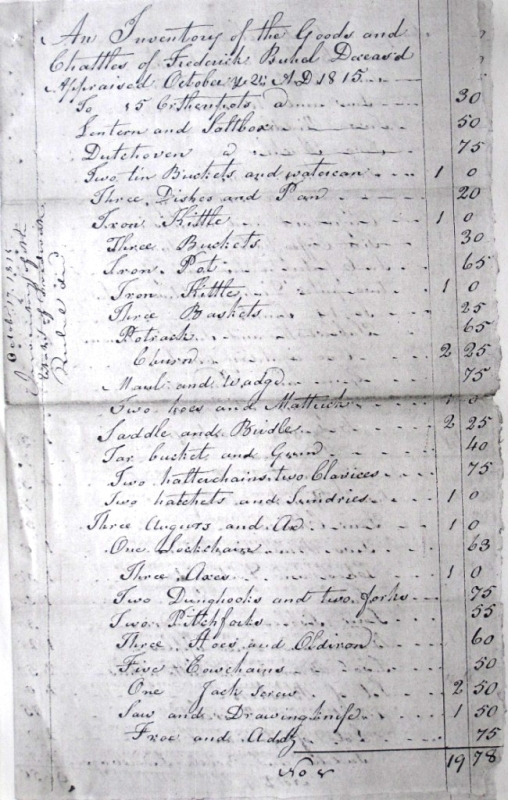 An Inventory of the Goods and
Chattles of Frederick Deceasd
Appraised October ye 2 AD 1815
To 15 Erthenpots a 30
Lentern and Saltbox 50
Dutchoven a 75
Two tin Buckets and watercan 1 0
Three Dishes and Pan 20
Iron Kittle 1 0
Three Buckets 30
Iron Pot 65
Iron Kittle 1 0
Three Baskets 25
Potrack 65
Churn 2 25
Maul and Wadge 75
Two hoes and Mattuck 1 0
Saddle and Bridle 2 25
Tar bucket and 40
Two halterchains two Clavices 75
Two hatchets and Sundries 1 0
Three Augurs and Ax 1 0
One Lockchain 63
Three Axes 1 0
Two Dunghooks and two forks 75
Two Pitchforks 55
Three Hoes and Oldiron 60
Five Cowchains 50
One Jack Screw 2 50
Saw and Drawingknife 1 50
Froe and Addz 75
19 78
October 17, 1815